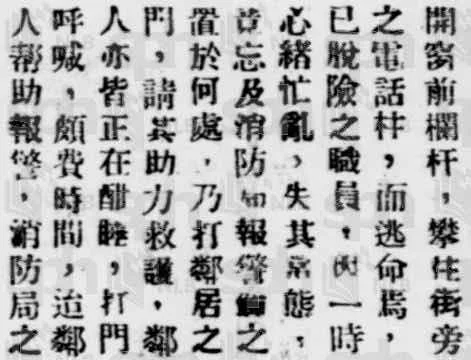 開窗前欄杆，攀住街旁
之電話柱，而逃命焉，
已脫險之職員，因一時
心緒忙亂，失其常態，
竟忘及消防報警鐘之
置於何處，乃打鄰居之
門，請其助力救護，鄰
人亦皆正在酣睡，打門
呼喊，頗費時間，迨鄰
人幫助報警，消防局之